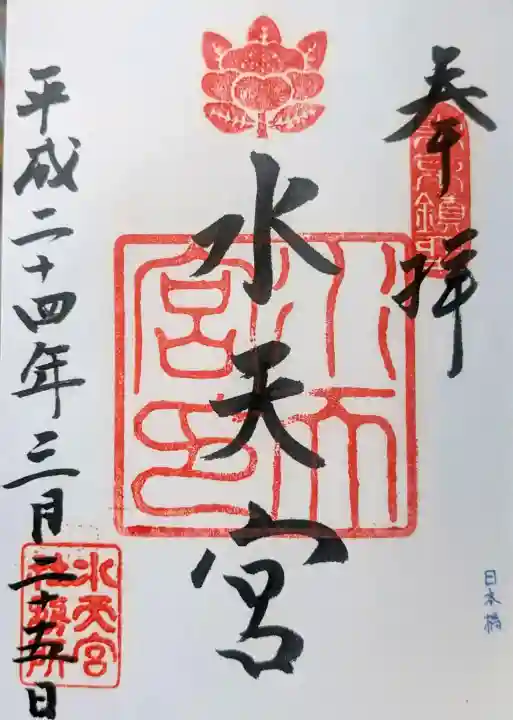 奉拝
水天宮
水天宮印
平成二十四年三月二十五日
水天宮
社務所
日本橋